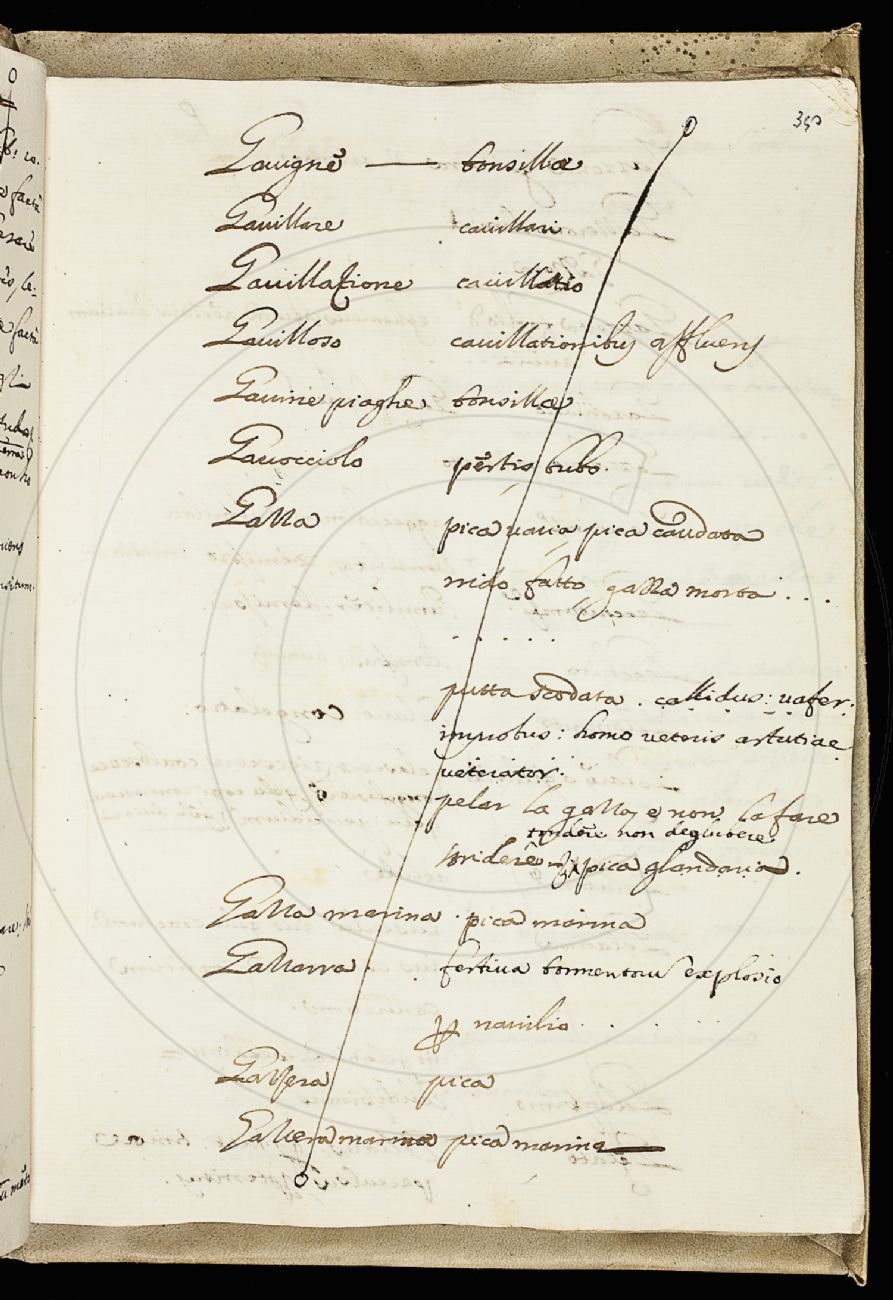 350
Gauignè — tonsillæ
Gauillare cauillari
Gauillatione cauillatio
Gauilloso cauillationibus affluens
Gauine piaghe tonsillæ
Gauocciolo pestis bubo.
Gazza pica uaria pica caudata
nido fatto gazza morta . . .
. . . . .
putta scodata . callidus: uafer:
homo ueteris astutiae
ueterator.
pelar la gazza e non la fare
tondere non deglubere.
stridere pica glandaria.
Gazza marina . pica marina
Gazzarra . festiua tormentorū explosio
nauilio . .
Gazzera pica
Gazzera marina pica marina